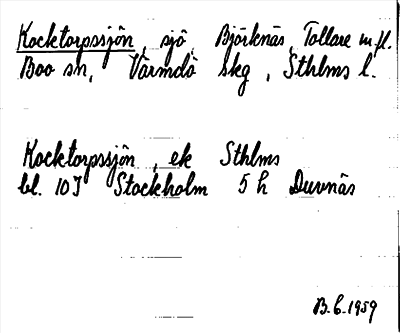 Kocktorpssjön, sjö Björknäs, Tollare m.fl.
Boo sn, Värmdö skg, Sthlms l.
Kocktorpssjön, ek Sthlms
bl. 10I Stockholm 5h Duvnäs
B.6.1959